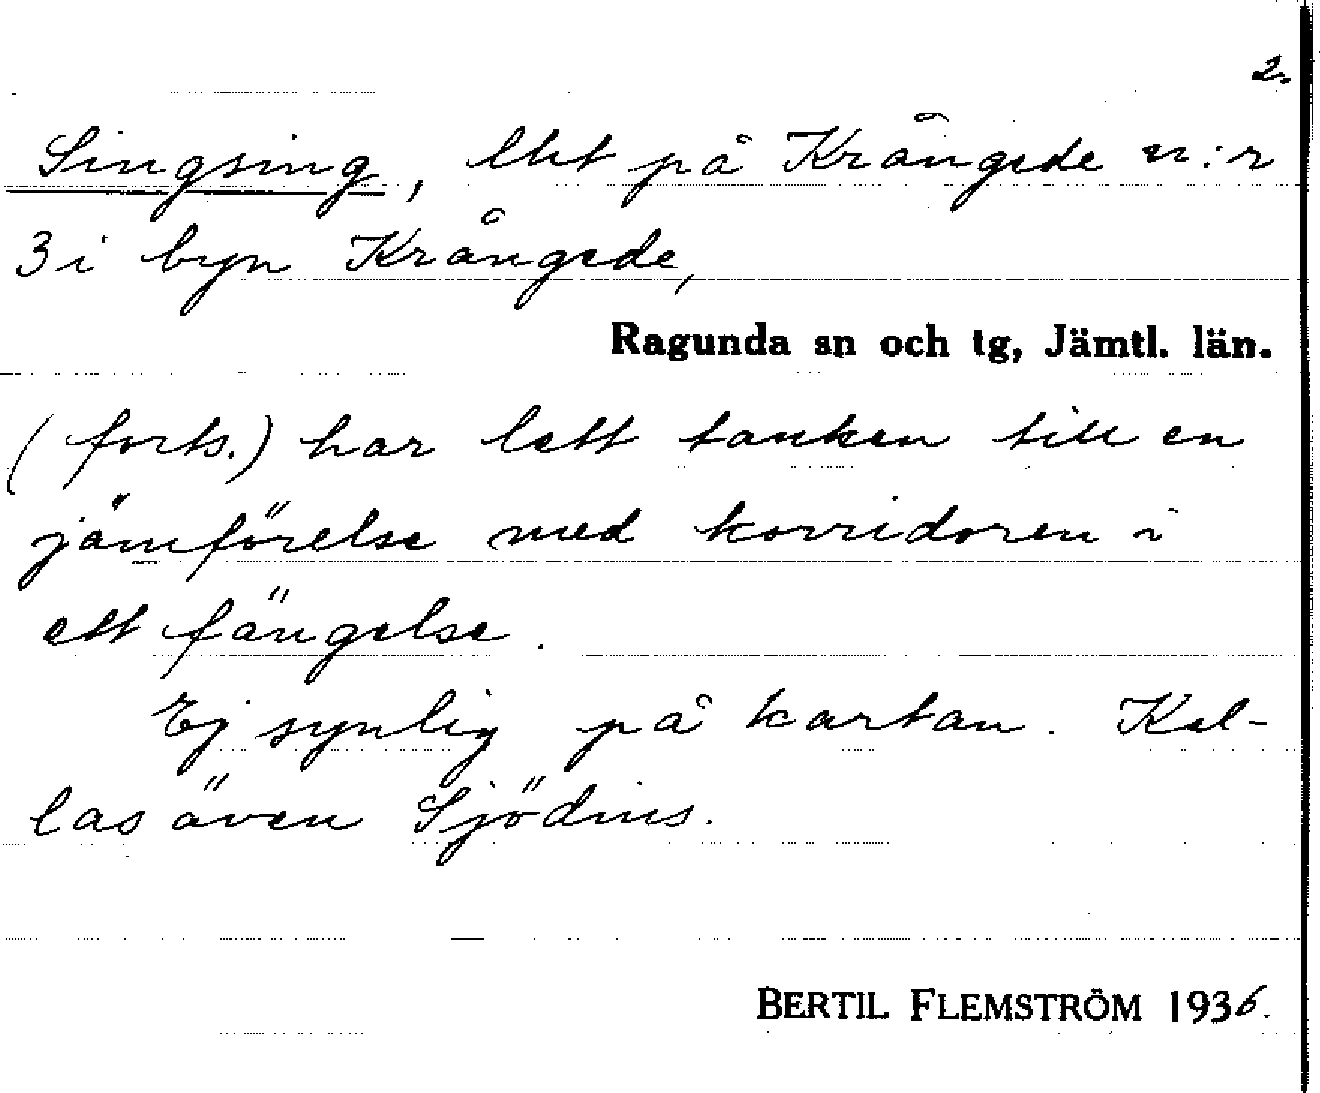 2.
Singsing, lht på Krångede n:r
3 i byn Krångede,
Ragunda sn och tg, Jämtl. län.
(forts.) har lett tanken till en
jämförelse med korridoren i
ett fängelse.
Ej synlig på kartan. Kal-
las även Sjödins.
BERTIL FLEMSTRÖM 1936.